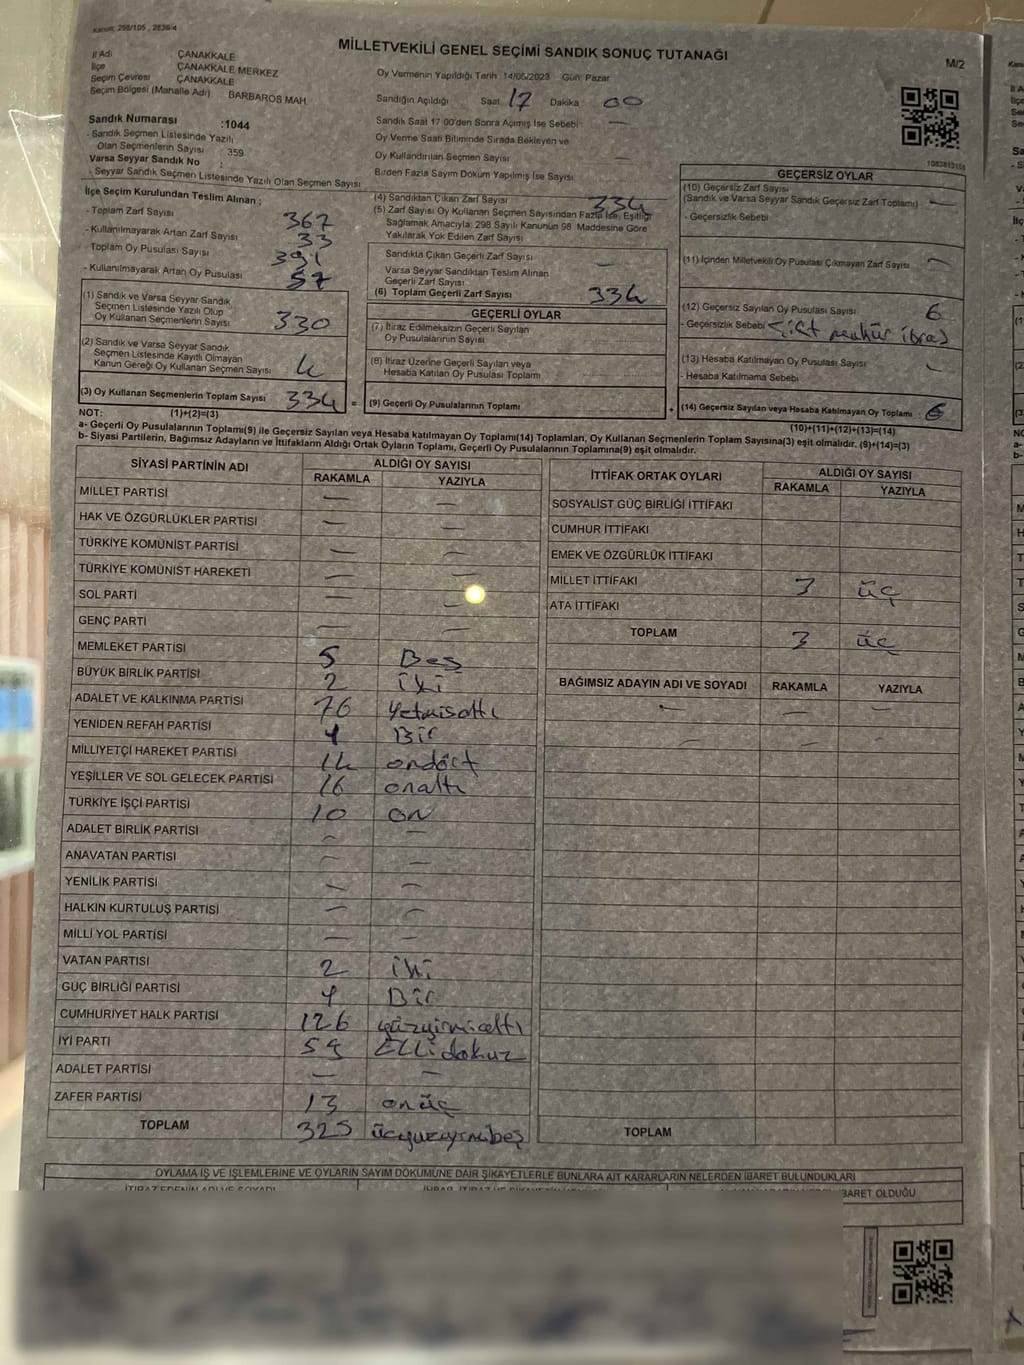 Kanun: 298/105 , 2839/4
MİLLETVEKİLİ GENEL SEÇİMİ SANDIK SONUÇ TUTANAĞI
M/2
İl Adı ÇANAKKALE
İlçe ÇANAKKALE MERKEZ
Seçim Çevresi ÇANAKKALE
Seçim Bölgesi (Mahalle Adı) BARBAROS MAH.
Sandık Numarası :1044
- Sandık Seçmen Listesinde Yazılı
Olan Seçmenlerin Sayısı : 359
Varsa Seyyar Sandık No :
- Seyyar Sandık Seçmen Listesinde Yazılı Olan Seçmen Sayısı
Oy Vermenin Yapıldığı Tarih 14/05/2023 Gün: Pazar
Sandığın Açıldığı Saat 17 Dakika 00
Sandık Saat 17:00'den Sonra Açılmış İse Sebebi —
Oy Verme Saati Bitiminde Sırada Bekleyen ve
Oy Kullandırılan Seçmen Sayısı —
Birden Fazla Sayım Döküm Yapılmış İse Sayısı
İlçe Seçim Kurulundan Teslim Alınan ;
- Toplam Zarf Sayısı 367
- Kullanılmayarak Artan Zarf Sayısı 33
- Toplam Oy Pusulası Sayısı 391
- Kullanılmayarak Artan Oy Pusulası 57
(1) Sandık ve Varsa Seyyar Sandık
Seçmen Listesinde Yazılı Olup
Oy Kullanan Seçmenlerin Sayısı 330
(2) Sandık ve Varsa Seyyar Sandık
Seçmen Listesinde Kayıtlı Olmayan
Kanun Gereği Oy Kullanan Seçmen Sayısı 4
(3) Oy Kullanan Seçmenlerin Toplam Sayısı 334 =
(4) Sandıktan Çıkan Zarf Sayısı 334
(5) Zarf Sayısı Oy Kullanan Seçmen Sayısından Fazla İse, Eşitliği
Sağlamak Amacıyla; 298 Sayılı Kanunun 98. Maddesine Göre
Yakılarak Yok Edilen Zarf Sayısı
Sandıkta Çıkan Geçerli Zarf Sayısı —
Varsa Seyyar Sandıktan Teslim Alınan
Geçerli Zarf Sayısı
(6) Toplam Geçerli Zarf Sayısı 334
GEÇERLİ OYLAR
(7) İtiraz Edilmeksizin Geçerli Sayılan
Oy Pusulalarının Sayısı
(8) İtiraz Üzerine Geçerli Sayılan veya
Hesaba Katılan Oy Pusulası Toplamı
(9) Geçerli Oy Pusulalarının Toplamı +
1083813155
GEÇERSİZ OYLAR
(10) Geçersiz Zarf Sayısı
(Sandık ve Varsa Seyyar Sandık Geçersiz Zarf Toplamı) —
- Geçersizlik Sebebi
(11) İçinden Milletvekili Oy Pusulası Çıkmayan Zarf Sayısı —
(12) Geçersiz Sayılan Oy Pusulası Sayısı 6
- Geçersizlik Sebebi Çift mühür
(13) Hesaba Katılmayan Oy Pusulası Sayısı —
- Hesaba Katılmama Sebebi
(14) Geçersiz Sayılan veya Hesaba Katılmayan Oy Toplamı 6
NOT: (1)+(2)=(3) (10)+(11)+(12)+(13)=(14)
a- Geçerli Oy Pusulalarının Toplamı(9) ile Geçersiz Sayılan veya Hesaba katılmayan Oy Toplamı(14) Toplamları, Oy Kullanan Seçmenlerin Toplam Sayısına(3) eşit olmalıdır. (9)+(14)=(3)
b- Siyasi Partilerin, Bağımsız Adayların ve İttifakların Aldığı Ortak Oyların Toplamı, Geçerli Oy Pusulalarının Toplamına(9) eşit olmalıdır.
SİYASİ PARTİNİN ADI ALDIĞI OY SAYISI
RAKAMLA YAZIYLA
MİLLET PARTİSİ — —
HAK VE ÖZGÜRLÜKLER PARTİSİ — —
TÜRKİYE KOMÜNİST PARTİSİ — —
TÜRKİYE KOMÜNİST HAREKETİ — —
SOL PARTİ — —
GENÇ PARTİ — —
MEMLEKET PARTİSİ 5 Beş
BÜYÜK BİRLİK PARTİSİ 2 iki
ADALET VE KALKINMA PARTİSİ 76 Yetmişaltı
YENİDEN REFAH PARTİSİ 1 Bir
MİLLİYETÇİ HAREKET PARTİSİ 14 ondört
YEŞİLLER VE SOL GELECEK PARTİSİ 16 onaltı
TÜRKİYE İŞÇİ PARTİSİ 10 on
ADALET BİRLİK PARTİSİ — —
ANAVATAN PARTİSİ — —
YENİLİK PARTİSİ — —
HALKIN KURTULUŞ PARTİSİ — —
MİLLİ YOL PARTİSİ — —
VATAN PARTİSİ 2 iki
GÜÇ BİRLİĞİ PARTİSİ 1 Bir
CUMHURİYET HALK PARTİSİ 126 yüzyirmialtı
İYİ PARTİ 59 Ellidokuz
ADALET PARTİSİ — —
ZAFER PARTİSİ 13 onüç
TOPLAM 325 üçyüzyirmibeş
İTTİFAK ORTAK OYLARI ALDIĞI OY SAYISI
RAKAMLA YAZIYLA
SOSYALİST GÜÇ BİRLİĞİ İTTİFAKI
CUMHUR İTTİFAKI
EMEK VE ÖZGÜRLÜK İTTİFAKI
MİLLET İTTİFAKI 3 üç
ATA İTTİFAKI
TOPLAM 3 üç
BAĞIMSIZ ADAYIN ADI VE SOYADI RAKAMLA YAZIYLA
— — —
— — —
TOPLAM
OYLAMA İŞ VE İŞLEMLERİNE VE OYLARIN SAYIM DÖKÜMÜNE DAİR ŞİKAYETLERLE BUNLARA AİT KARARLARIN NELERDEN İBARET BULUNDUKLARI
İTİRAZ EDENİN ADI VE SOYADI
BARET OLDUĞU